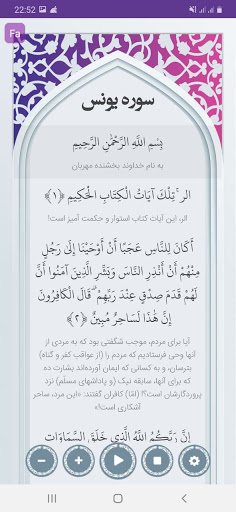 22:52
Fa
سوره یونس
بِسْمِ اللَّهِ الرَّحْمَٰنِ الرَّحِيمِ
به نام خداوند بخشنده مهربان
الر ۚ تِلْكَ آيَاتُ الْكِتَابِ الْحَكِيمِ ﴿١﴾
الر، این آیات کتاب استوار و حکمت آمیز است!
أَكَانَ لِلنَّاسِ عَجَبًا أَنْ أَوْحَيْنَا إِلَىٰ رَجُلٍ
مِنْهُمْ أَنْ أَنْذِرِ النَّاسَ وَبَشِّرِ الَّذِينَ آمَنُوا أَنَّ
لَهُمْ قَدَمَ صِدْقٍ عِنْدَ رَبِّهِمْ ۗ قَالَ الْكَافِرُونَ
إِنَّ هَٰذَا لَسَاحِرٌ مُبِينٌ ﴿٢﴾
آیا برای مردم، موجب شگفتی بود که به مردی از
آنها وحی فرستادیم که مردم را (از عواقب کفر و گناه)
بترسان، و به کسانی که ایمان آورده‌اند بشارت ده
که برای آنها، سابقه نیک (و پاداشهای مسلّم) نزد
پروردگارشان است؟! (امّا) کافران گفتند: «این مرد، ساحر
آشکاری است»!
إِنَّ رَبَّكُمُ اللَّهُ الَّذِي خَلَقَ السَّمَاوَاتِ